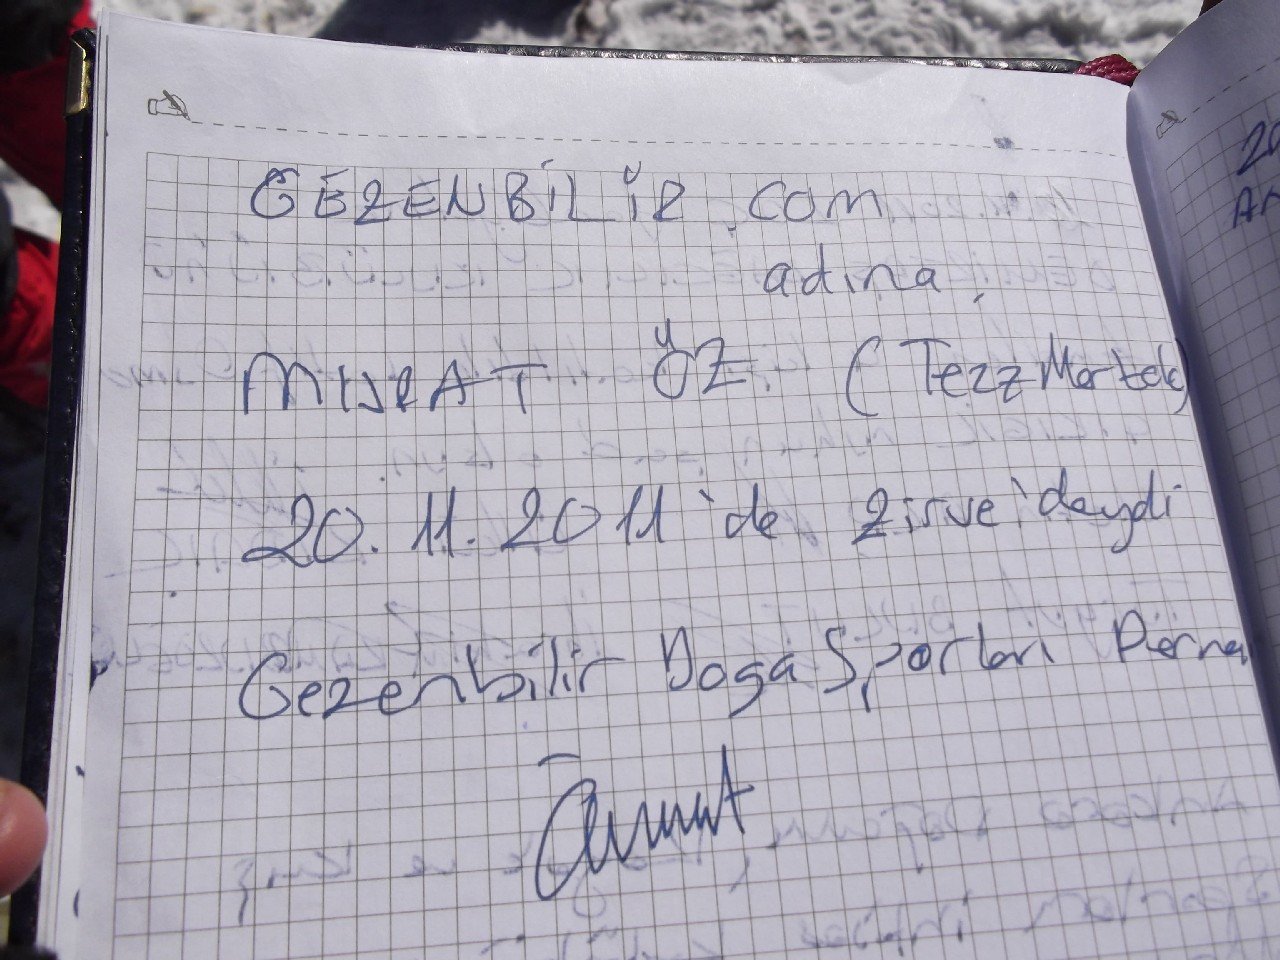 GEZENBİLİR.COM
adına,
MURAT ÖZ (TezzMartek)
20.11.2011'de zirve'deydi
Gezenbilir Doga Sporları
20